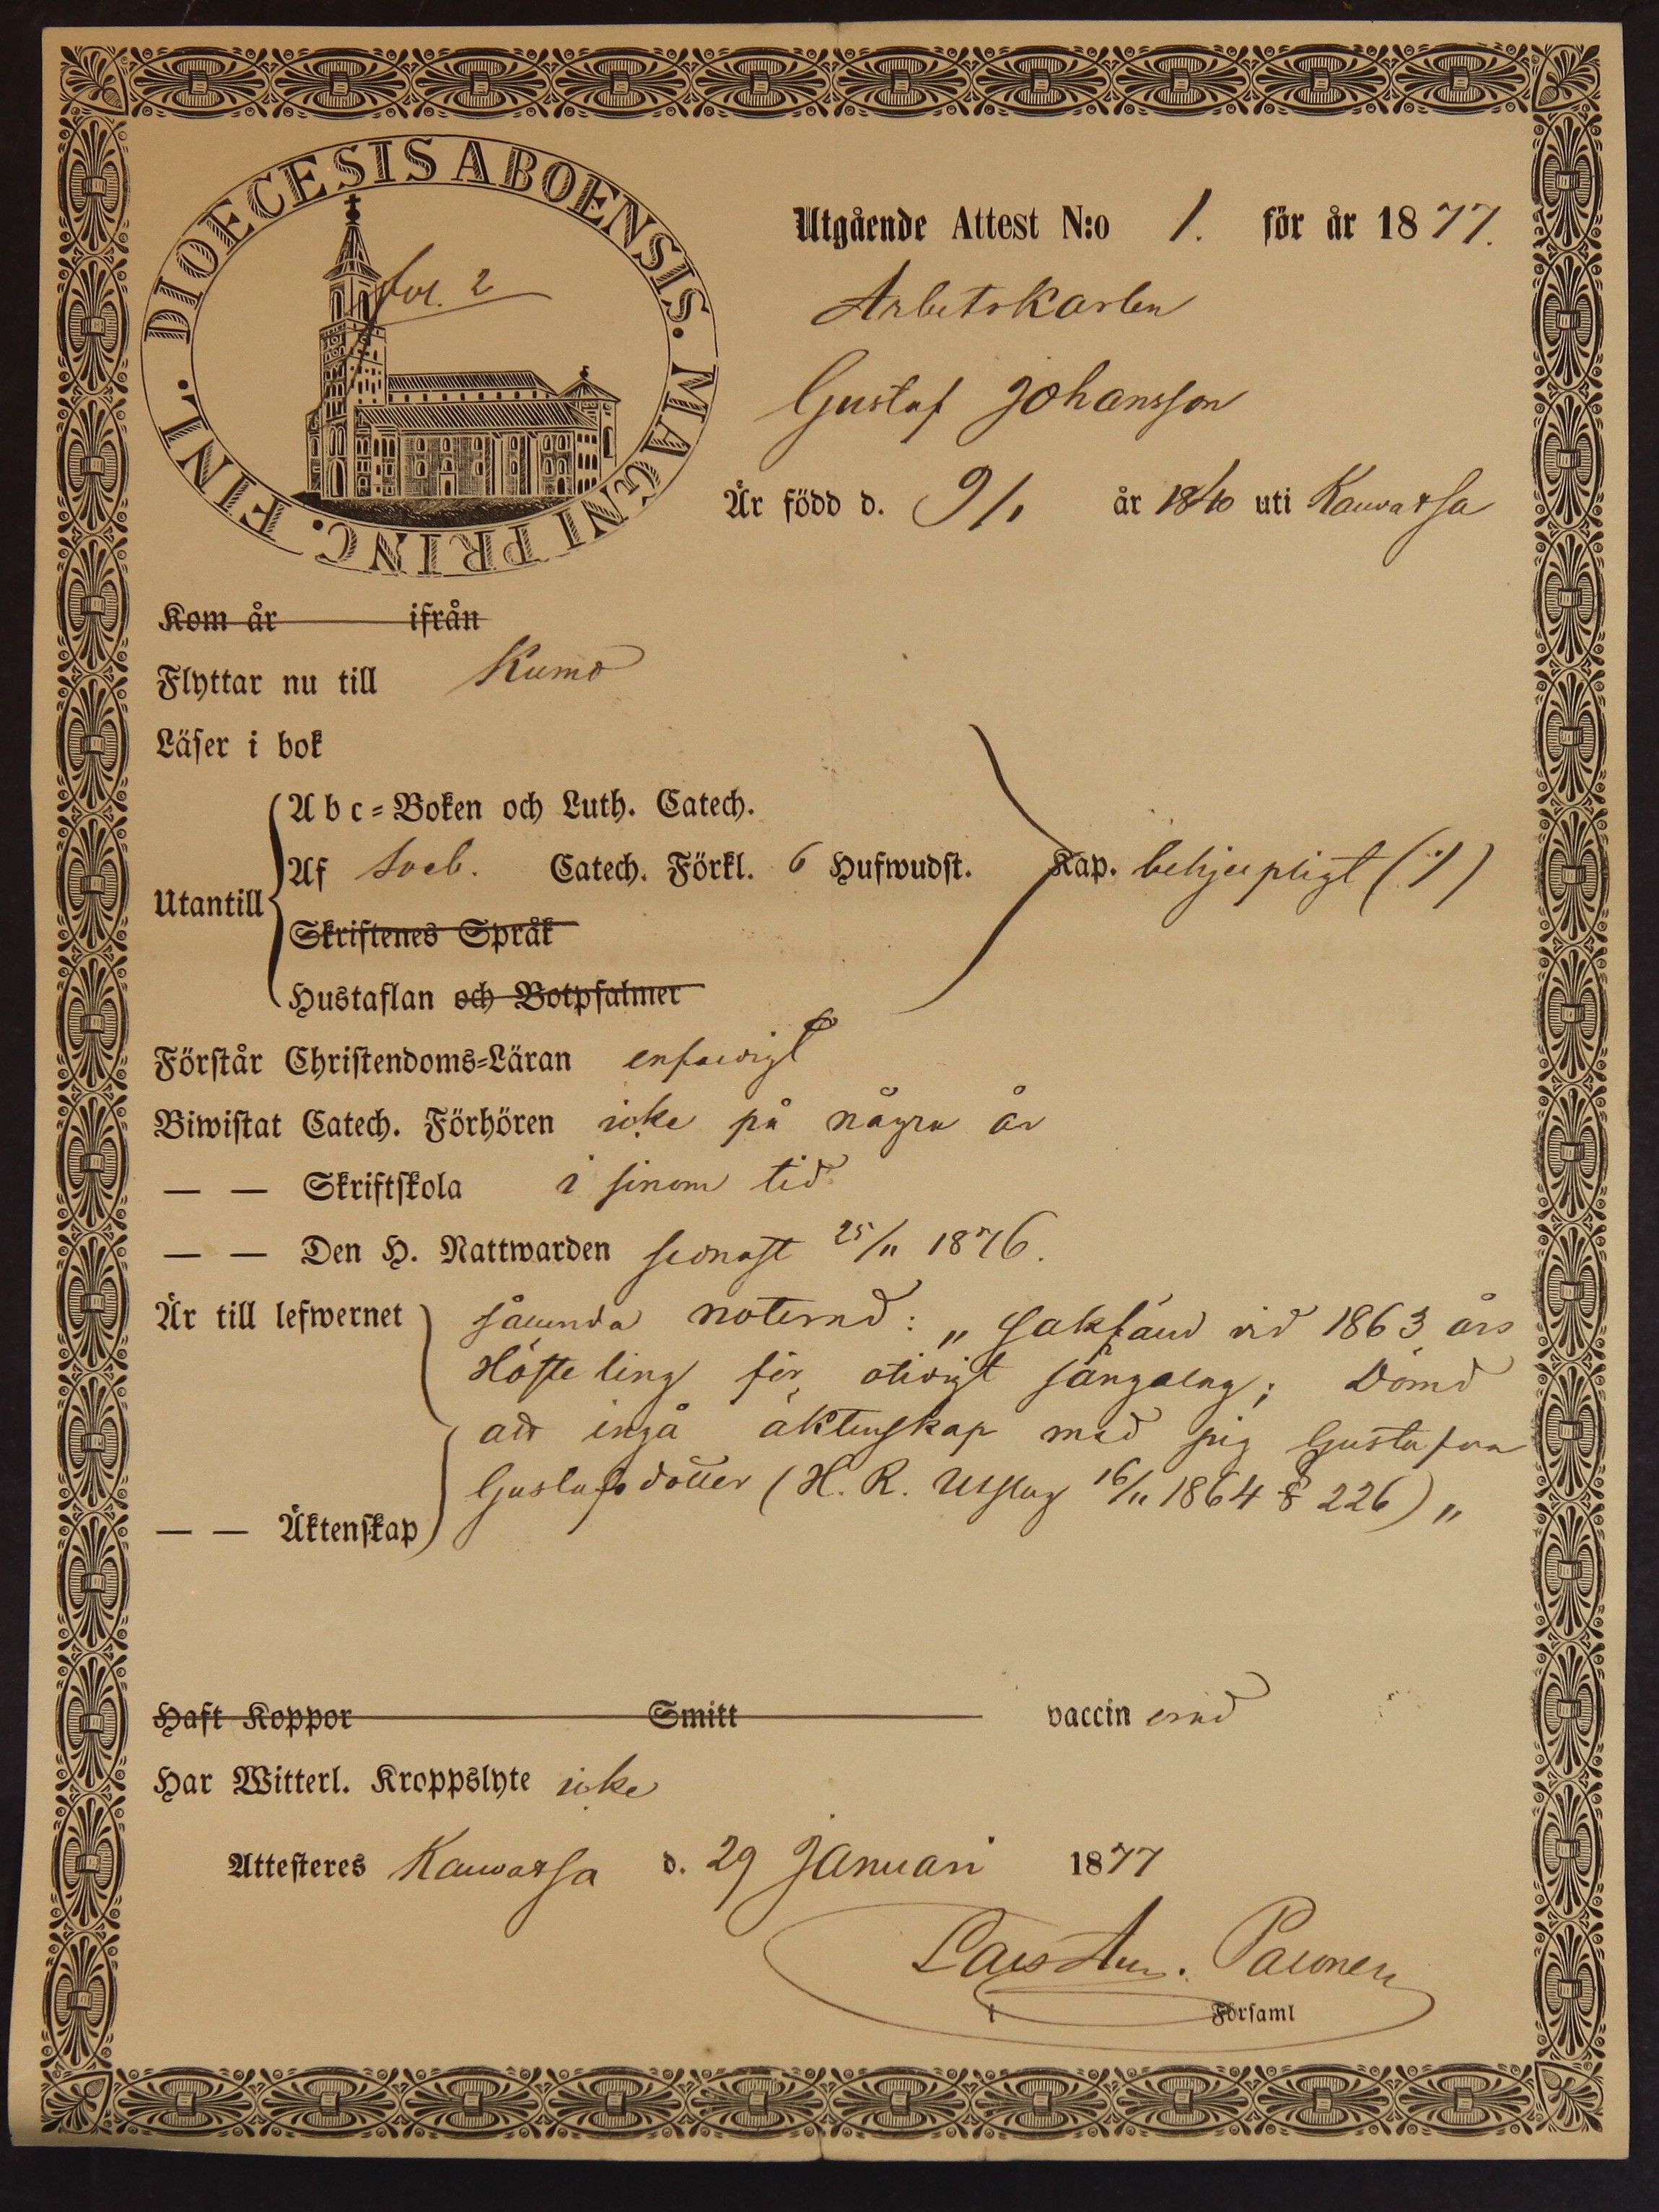 DIOECESIS ABOENSIS. MAGNI PRINC. FINL.
fol. 2
Utgående Attest N:o 1. för år 1877.
Arbetskarlen
Gustaf Johansson
Är född d. 9/1 år 1840 uti Kauvatsa
Kom år ifrån
Flyttar nu till Kumo
Läser i bok
Utantill
Abc-Boken och Luth. Catech.
Af Sveb. Catech. Förkl. 6 Hufwudst. Kap. behjelpligt (/)
Skriftenes Språk
Hustaflan och Botpsalmer
Förstår Christendoms-Läran enfaldigt
Biwistat Catech. Förhören icke på några år
— — Skriftskola i sinom tid
— — Den H. Nattwarden sednast 25/11 1876.
Är till lefwernet sålunda noterad: „ Sakfäld vid 1863 års
Höste ting för otidigt sängalag; Dömd
att ingå äktenskap med pig Gustafva
Gustafsdotter (H. R. Utslag 16/11 1864 § 226) „
— — Äktenskap
Haft Koppor Smitt vaccinerad
Har Witterl. Kroppslyte icke
Attesteres Kauvatsa d. 29 Januari 1877
Lars Aug. Paunen
i Församl